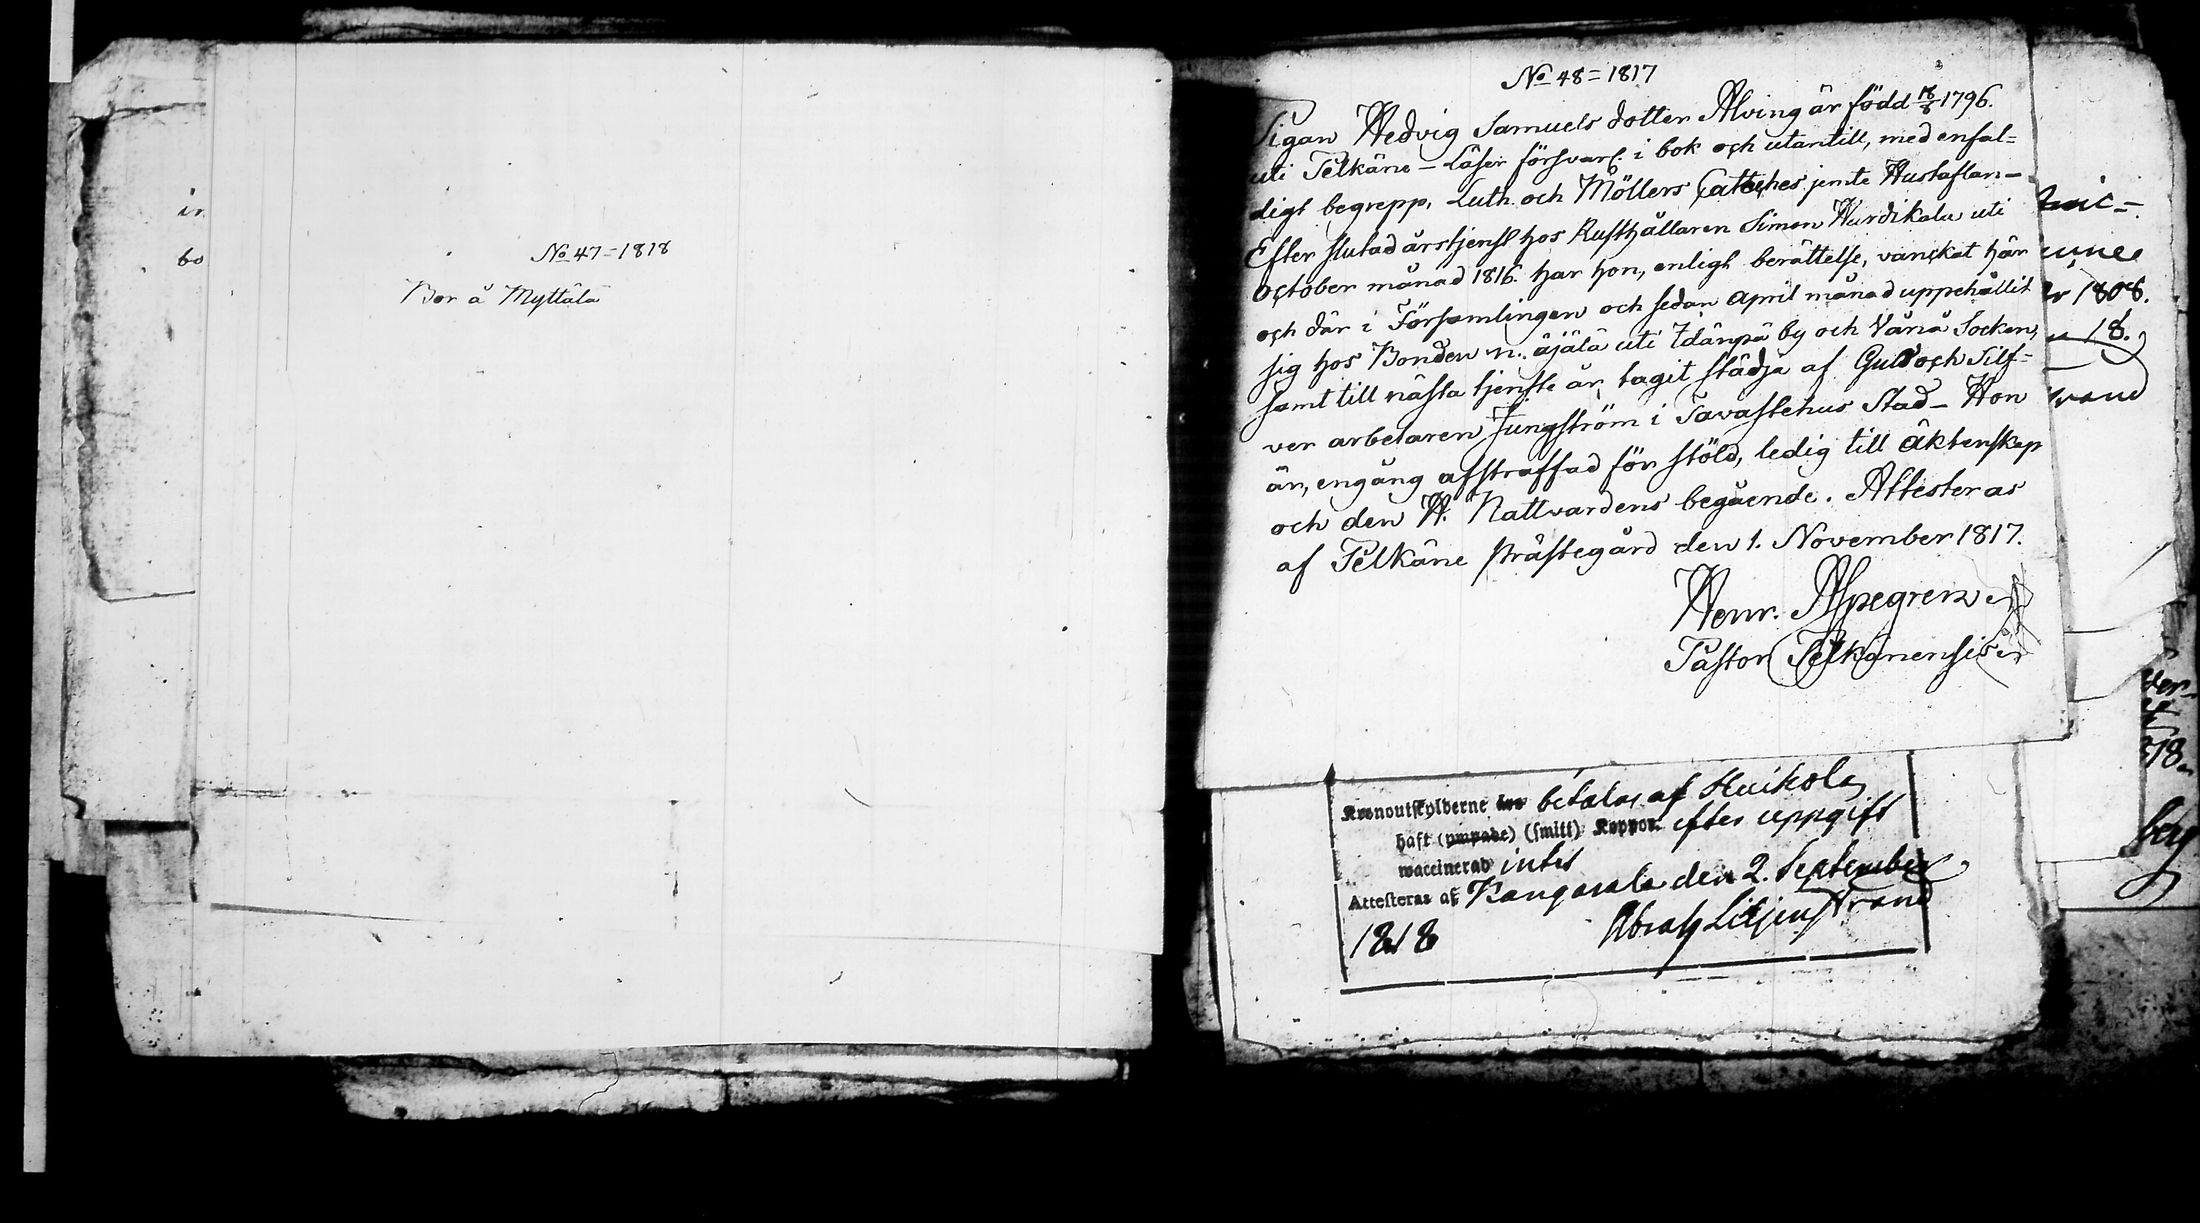 No 47 = 1818
Bor å Myttälä
in
bo
No 48 = 1817
Pigan Hedvig Samuels dotter Alving är född 18/8 1796.
uti Pelkäne – läser försvarl. i bok och utantill, med enfal=
digt begrepp, Luth. och Möllers Cateches jemte Hustaflan –
Efter slutad årstjenst hos Rusthållaren Simon Hurdikala uti
October månad 1816. har hon, enligt berättelse, vankat här
och där i Församlingen och sedan April månad uppehållit
sig hos Bonden n. Äjälä uti Idänpä by och Vånå Socken,
samt till nästa tjenste år, tagit städja af Guld och Silf=
ver arbetaren Ljungström i Tavastehus Stad – Hon
är, engång afstraffad för stöld, ledig till äktenskap
och den H. Nattvardens begående. Attesteras
af Pelkäne prästegård den 1. November 1817.
Henr. Alpegren
Pastor Pelkänensis
Kronoutskylderne betalas af Huikola
haft (ympade) (smitt) Koppor efter uppgift
waccinerad intet
Attesteras af Kangasala den 2. September
1818 Abrah Liljenstrand
unee
1808.
18.
rand
318
berg